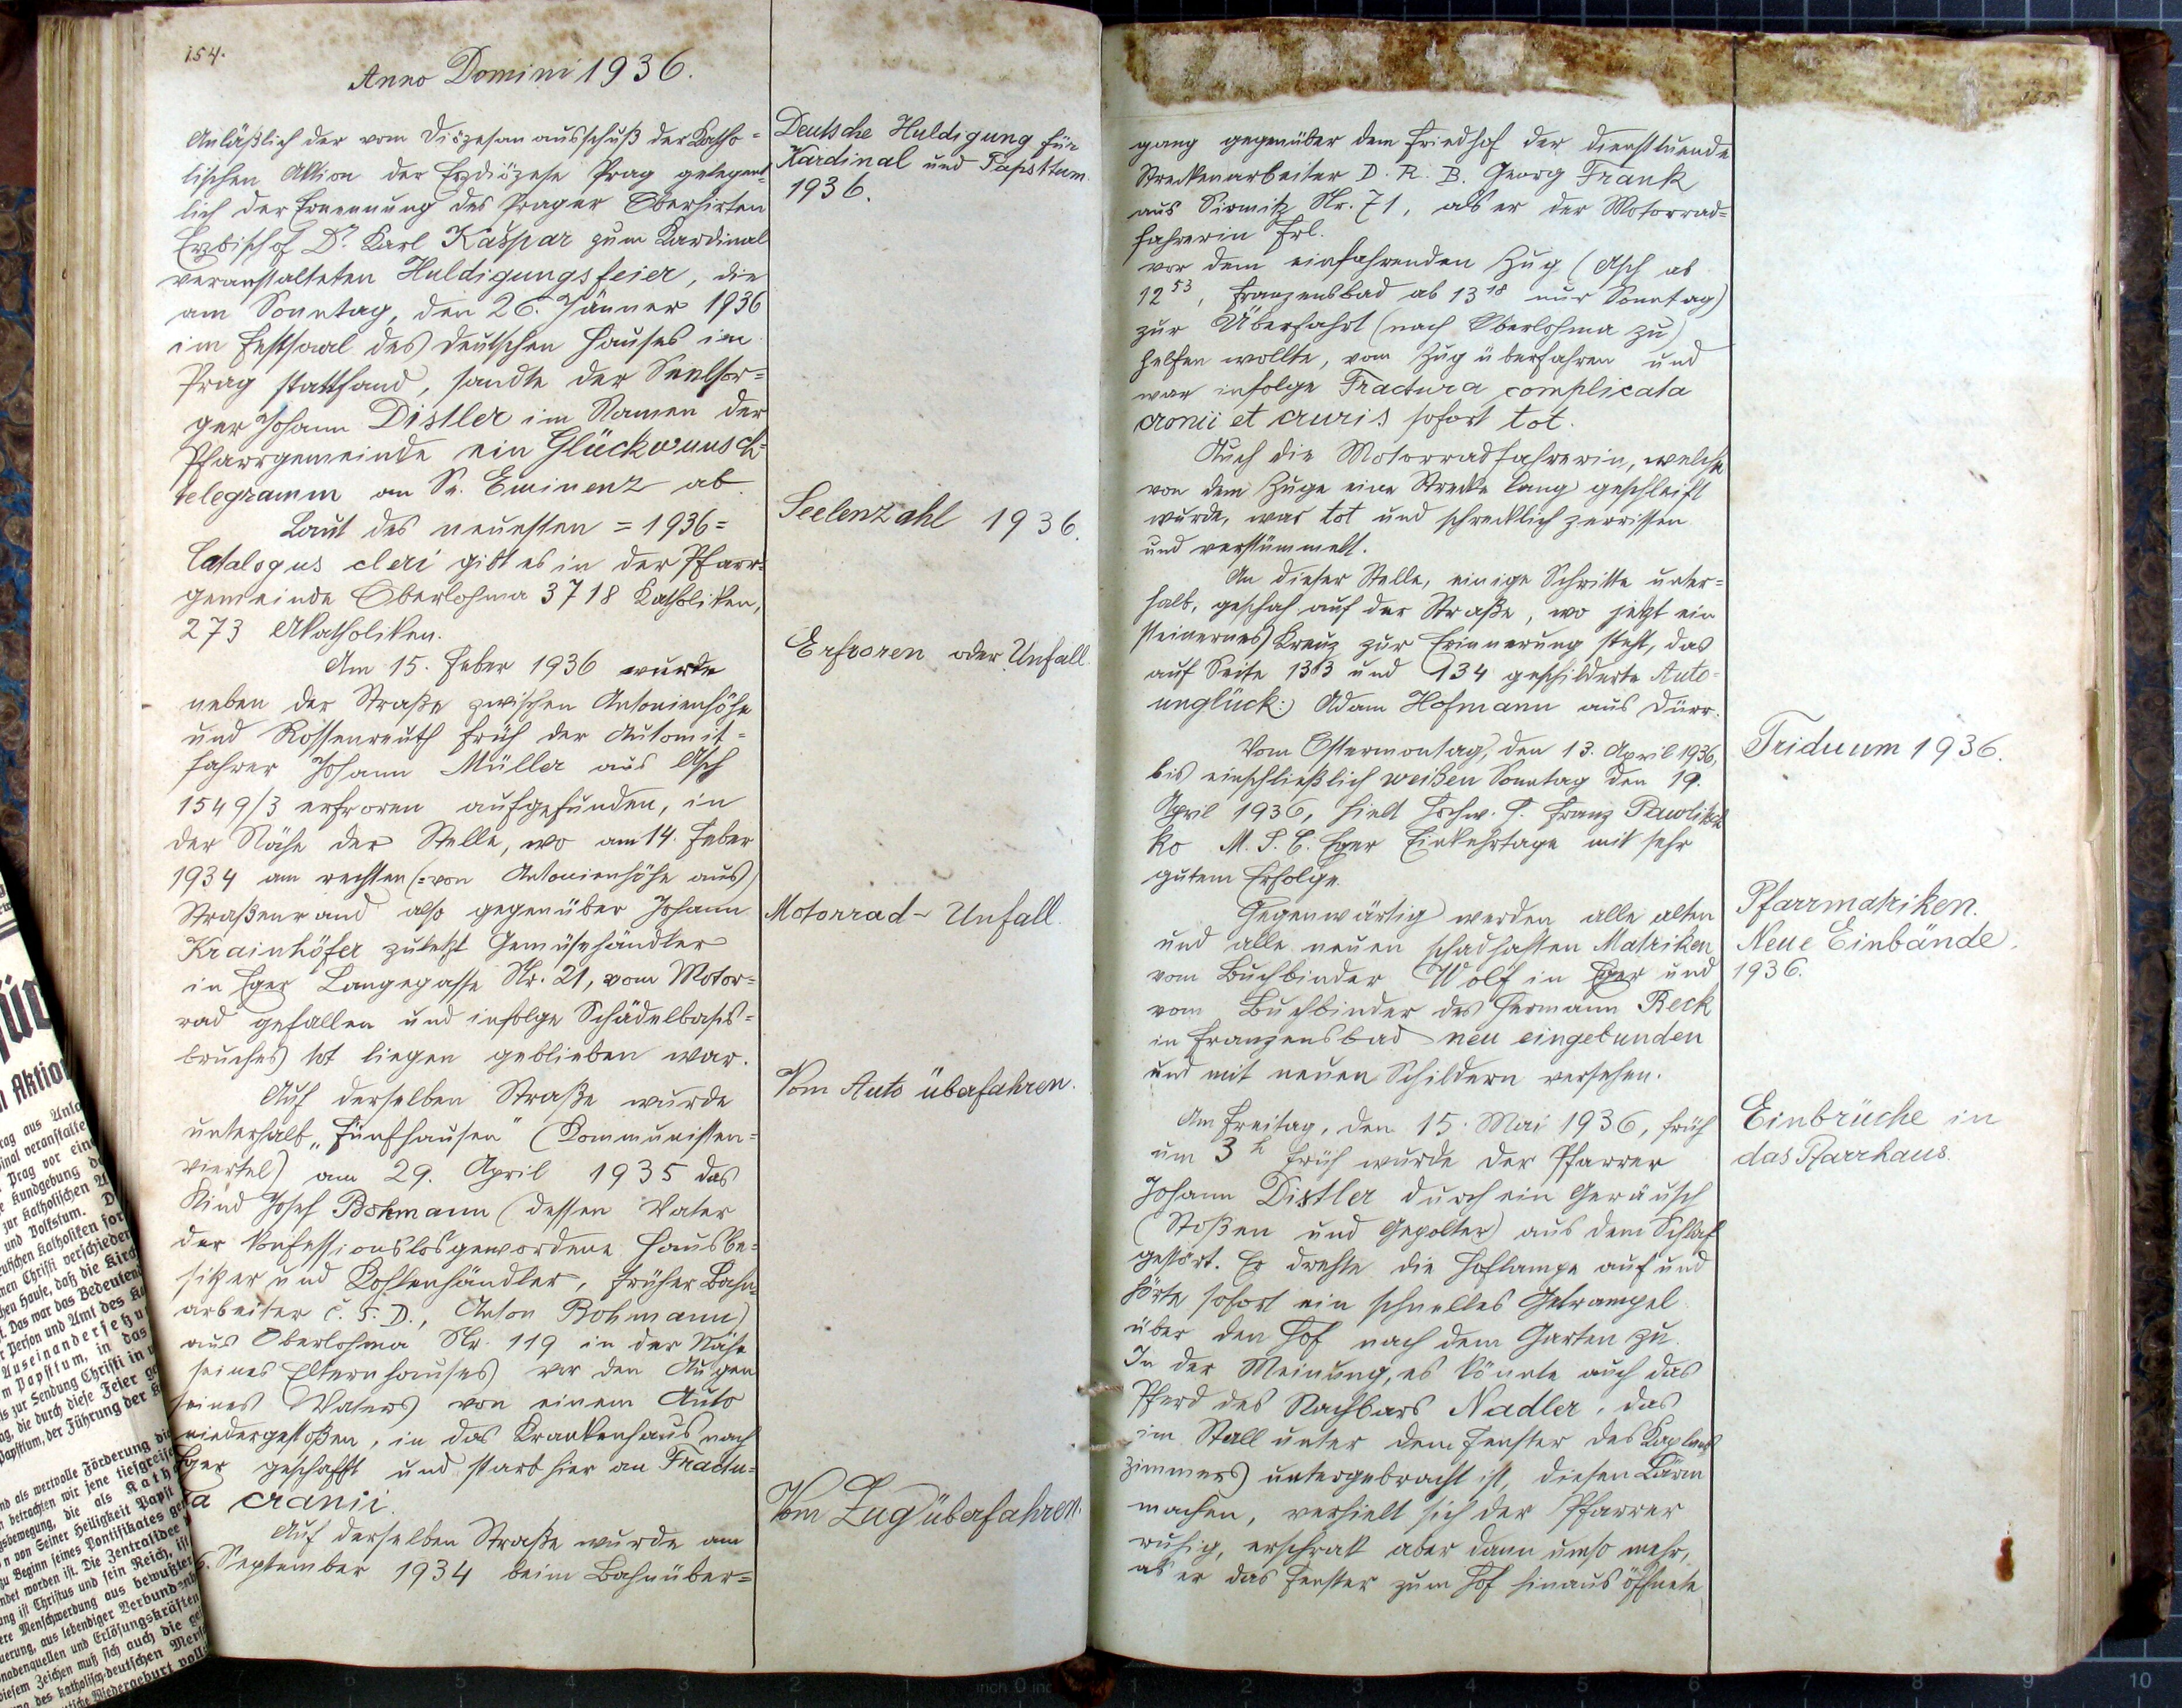 154.
Anno Domini 1936.
Anläßlich der vom Diözesanausschuß der Katho-
lischen Aktion der Erzdiözese Prag gelegent-
lich der Ernennung des Prager Oberhirten
Erzbischof Dr. Karl Kašpar zum Kardinal
veranstalteten Huldigungsfeier, die
am Sonntag, den 26. Jänner 1936
im Festsaal des Deutschen Hauses in
Prag stattfand, sandte der Seelsor-
ger Johann Distler im Namen der
Pfarrgemeinde ein Glückwunsch-
telegramm an Se. Eminenz ab.
Laut des neuesten = 1936 =
Catalogus cleri gibt es in der Pfarr-
gemeinde Oberlohma 3718 Katholiken,
273 Akatholiken.
Am 15. Feber 1936 wurde
neben der Straße zwischen Antonienhöhe
und Rossenreuth früh der Automit-
fahrer Johann Müller aus Asch
1549/3 erfroren aufgefunden, in
der Nähe der Stelle, wo am 14. Feber
1934 am rechten (: von Antonienhöhe aus)
Straßenrand also gegenüber Johann
Krainhöfer zuletzt Gemüsehändler
in Eger Langegasse Nr. 21, vom Motor-
rad gefallen und infolge Schädelbasis-
bruches tot liegen geblieben war.
Auf derselben Straße wurde
unterhalb "Fünfhausen" (Kommunisten-
viertel) am 29. April 1935 das
Kind Josef Bohmann (dessen Vater
der konfessionslosgewordene Hausbe-
sitzer und Kohlenhändler, früher Bahn-
arbeiter Č. S. D., Anton Bohmann)
aus Oberlohma Nr. 119 in der Nähe
seines Elternhauses vor den Augen
seines Vaters von einem Auto
niedergestoßen, in das Krankenhaus nach
Eger geschafft und starb hier an Fractu-
ra cranii.
Auf derselben Straße wurde am
6. September 1934 beim Bahnüber-
Deutsche Huldigung für
Kardinal und Papsttum
1936.
Seelenzahl 1936.
Erfroren oder Unfall.
Motorrad-Unfall.
Vom Auto überfahren.
Vom Zug überfahren.
155.
gang gegenüber dem Friedhof der diensttuende
Streckenarbeiter D. R. B. Georg Frank
aus Sirmitz Nr. 71, als er der Motorrad-
fahrerin Frl.
vor dem einfahrenden Zug (Asch ab
12 53, Franzensbad ab 13 18 nur Sonntag)
zur Überfahrt (nach Oberlohma zu)
helfen wollte, vom Zug überfahren und
war infolge Fractura complicata
cronii et cruris sofort tot.
Auch die Motorradfahrerin, welche
von dem Zuge eine Strecke lang geschleift
wurde, war tot und schrecklich zerrissen
und verstümmelt.
An dieser Stelle, einige Schritte unter-
halb, geschah auf der Straße, wo jetzt ein
steinernes Kreuz zur Erinnerung steht, das
auf Seite 133 und 134 geschilderte Auto-
unglück: Adam Hofmann aus Dürr.
Vom Ostermontag, den 13. April 1936,
bis einschließlich weißen Sonntag den 19.
April 1936, hielt Hochw. P. Franz
ko M. S. C. Eger Einkehrtage mit sehr
gutem Erfolge.
Gegenwärtig werden alle alten
und alle neuen schadhaften Matriken
vom Buchbinder Wolf in Eger und
vom Buchbinder des Hermann Reck
in Franzensbad neu eingebunden
und mit neuen Schildern versehen.
Am Freitag, den 15. Mai 1936, früh
um 3 h früh wurde der Pfarrer
Johann Distler durch ein Geräusch
(Stoßen und Gepolter) aus dem Schlaf
gestört. Er drehte die Hoflampe auf und
hörte sofort ein schnelles Getrampel
über den Hof nach dem Garten zu.
In der Meinung, es könnte auch das
Pferd des Nachbars Nadler, das
im Stall unter dem Fenster des Kaplans
zimmers untergebracht ist, diesen Lärm
machen, verhielt sich der Pfarrer
ruhig, erschrak aber dann umso mehr,
als er das Fenster zum Hof hinaus öffnete
Triduum 1936.
Pfarrmatriken.
Neue Einbände.
1936.
Einbrüche in
das Pfarrhaus.